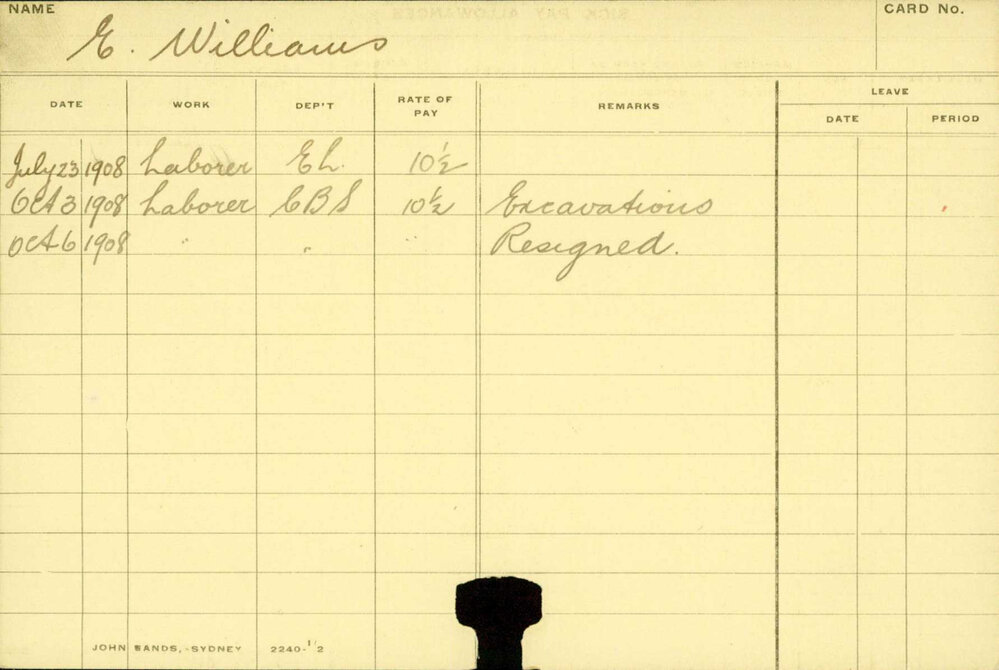 NAME CARD No.
E. Williams
LEAVE
DATE WORK DEP'T RATE OF PAY REMARKS DATE PERIOD
July 23 1908 Laborer EL. 10½
Oct 3 1908 Laborer CBS 10½ Excavations
Oct 6 1908 " " " Resigned.
JOHN SANDS, -SYDNEY 2240-1/2